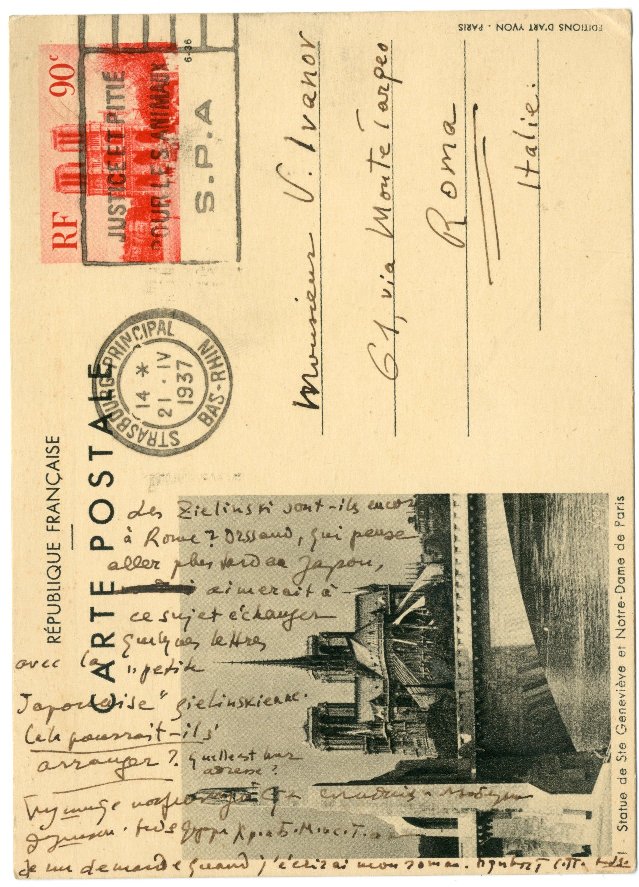 RÉPUBLIQUE FRANÇAISE
CARTE POSTALE
RF 90c
JUSTICE ET PITIÉ
POUR LES ANIMAUX
S.P.A
6-36
STRASBOURG-PRINCIPAL
14 *
21-IV
1937
BAS-RHIN
Monsieur V. Ivanov
61, via Monte Tarpeo
Roma
Italie.
EDITIONS D'ART YVON - PARIS
Statue de Ste Geneviève et Notre-Dame de Paris
Les Zielinski sont-ils encor
à Rome? qui pense
aller plus tard au Japon,
aimerait à
ce sujet échanger
quelques lettres
avec la „petite
Japonaise" zielinskienne.
Cela pourrait-il s'
arranger? quelle est leur
adresse?
je me demande quand j'écrirai mon roman.